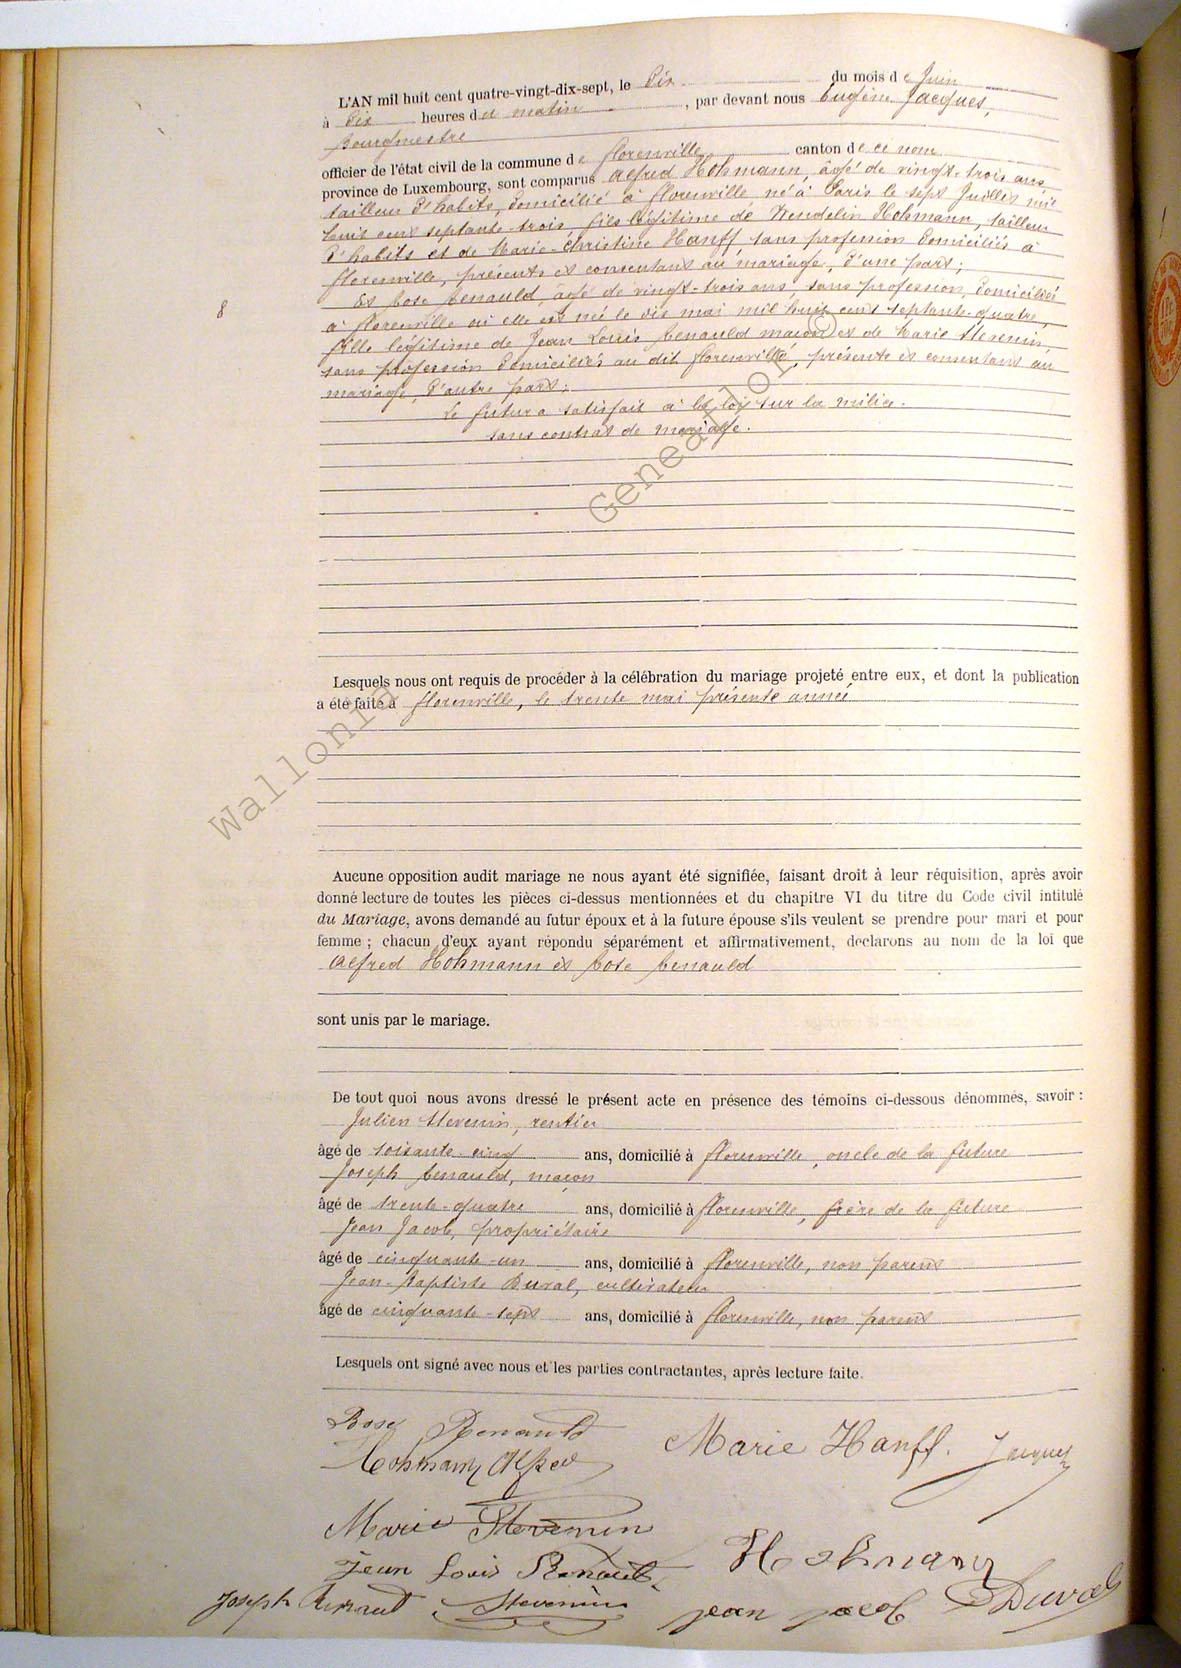 L'AN mil huit cent quatre-vingt-dix-sept, le Dix du mois de Juin
à Dix heures du matin, par devant nous Eugène Jacques,
Bourgmestre
officier de l'état civil de la commune de Florenville canton de ce nom
province de Luxembourg, sont comparus Alfred Hohmann, âgé de vingt-trois ans,
tailleur d'habits, domicilié à Florenville né à Paris le sept Juillet mil
huit cent septante-trois, fils légitime de Wendelin Hohmann, tailleur
d'habits et de Marie-Christine Hanff, sans profession domiciliés à
Florenville, présents et consentant au mariage, d'une part;
Et Rose Renauld, âgé de vingt-trois ans, sans profession, domiciliée
8
à Florenville où elle est née le dix mai mil huit cent septante-quatre
fille légitime de Jean Louis Renauld maçon et de Marie Stevenin
sans profession domiciliés au dit Florenville, présents et consentant au
mariage, d'autre part;
Le futur a satisfait à la loi sur la milice.
sans contrat de mariage.
Lesquels nous ont requis de procéder à la célébration du mariage projeté entre eux, et dont la publication
a été faite à Florenville, le trente mai présente année
Aucune opposition audit mariage ne nous ayant été signifiée, faisant droit à leur réquisition, après avoir
donné lecture de toutes les pièces ci-dessus mentionnées et du chapitre VI du titre du Code civil intitulé
du Mariage, avons demandé au futur époux et à la future épouse s'ils veulent se prendre pour mari et pour
femme ; chacun d'eux ayant répondu séparément et affirmativement, declarons au nom de la loi que
Alfred Hohmann et Rose Renauld
sont unis par le mariage.
De tout quoi nous avons dressé le présent acte en présence des témoins ci-dessous dénommés, savoir :
Julien Stevenin, rentier
âgé de soixante-cinq ans, domicilié à Florenville, oncle de la future
Joseph Renauld, maçon
âgé de trente-quatre ans, domicilié à Florenville, frère de la future
Jean Jacob, propriétaire
âgé de cinquante-un ans, domicilié à Florenville, non parent
Jean-Baptiste Duval, cultivateur
âgé de cinquante-sept ans, domicilié à Florenville, non parent
Lesquels ont signé avec nous et les parties contractantes, après lecture faite.
Rose Renauld
Hohmann Alfred
Marie Hanff. Jacques
Marie Stevenin
Hohmann
Jean Louis Renauld
Joseph Renaud Stevenin jean jacob Duval
Wallonia Genealogy ©